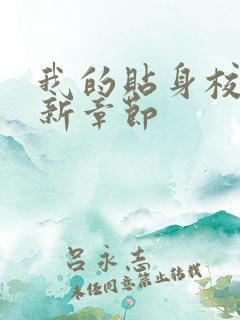 我的贴身校
新章节
吕永志
未经同意禁止转载